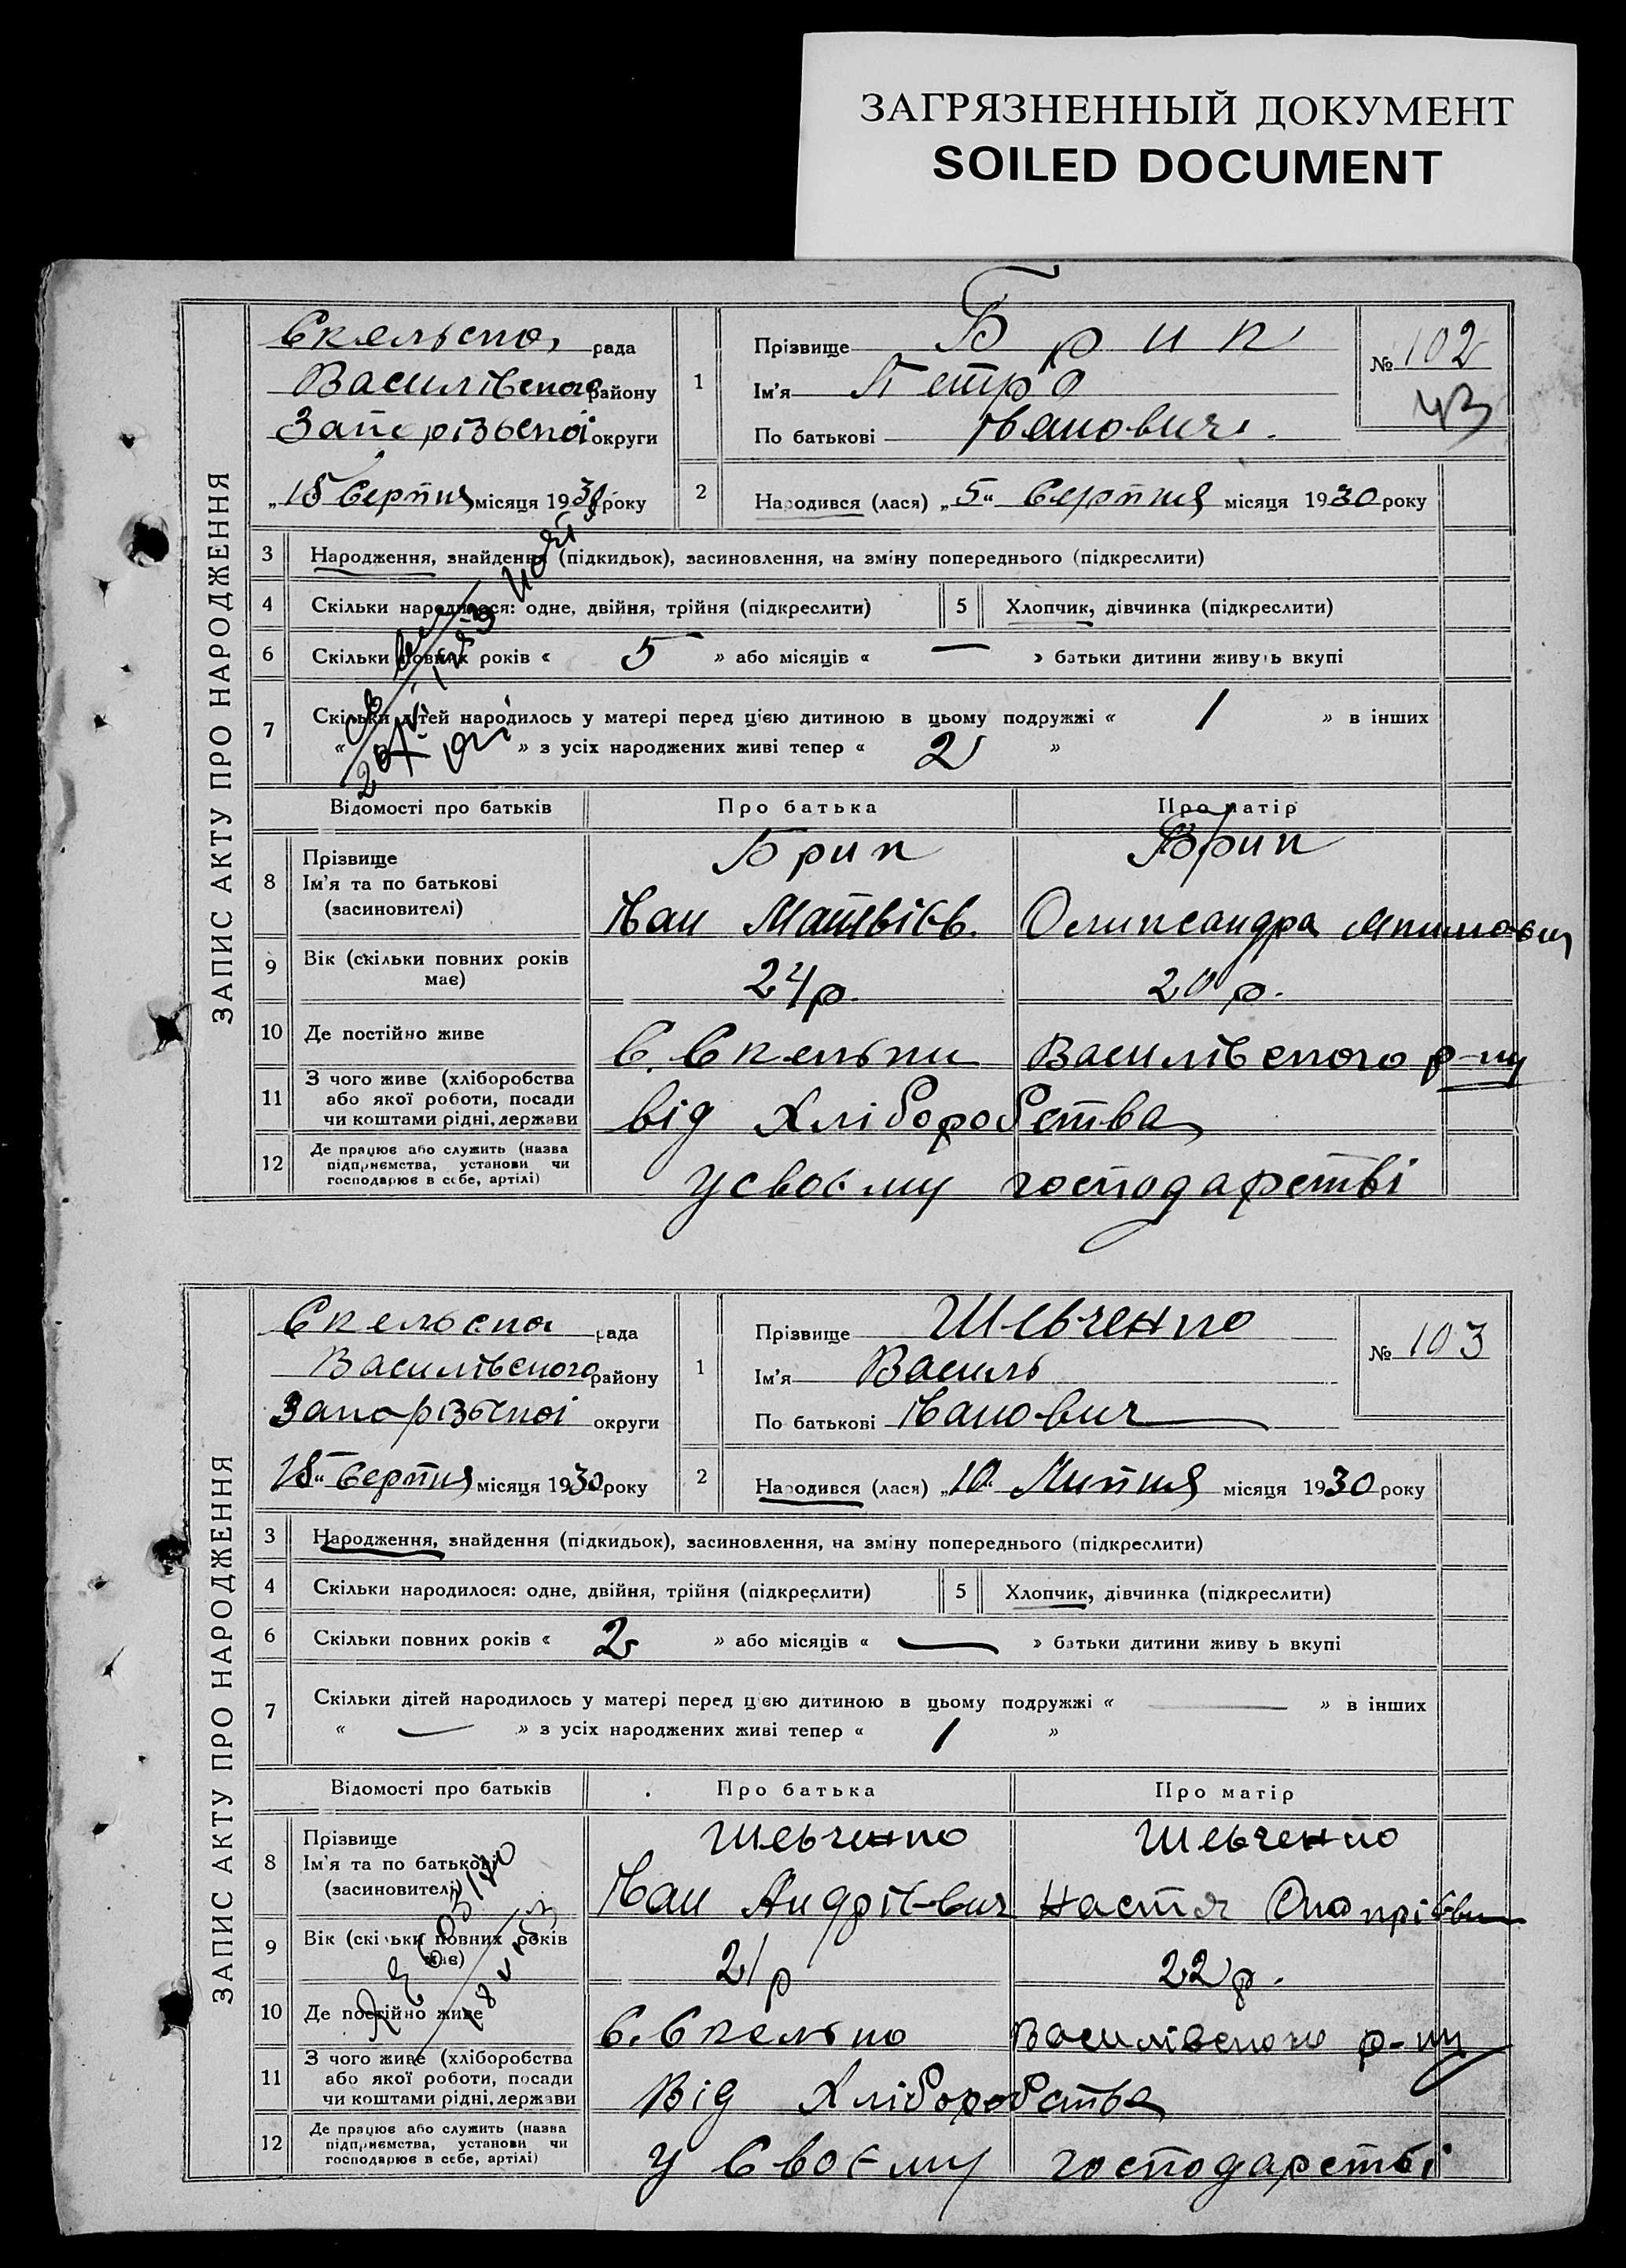 ЗАГРЯЗНЕННЫЙ ДОКУМЕНТ
SOILED DOCUMENT
ЗАПИС АКТУ ПРО НАРОДЖЕННЯ
Скельська рада
Василівського району
Запорізької округи
„18 Серпня місяця 1930 року
1
Прізвище Брик
Ім'я Петро
По батькові Іванович.
№ 102
43
2
Народився (лася) „5“ Серпня місяця 1930 року
3 Народження, знайдення (підкидьок), засиновлення, на зміну попереднього (підкреслити)
4 Скільки народилося: одне, двійня, трійня (підкреслити) 5 Хлопчик, дівчинка (підкреслити)
6 Скільки повних років « 5 » або місяців « — » батьки дитини живуть вкупі
7 Скільки дітей народилось у матері перед цією дитиною в цьому подружжі « 1 » в інших
« » з усіх народжених живі тепер « 2 »
Відомості про батьків Про батька Про матір
8 Прізвище
Ім'я та по батькові
(засновителі)
Брик Брик
Іван Матвієв. Олександра
9 Вік (скільки повних років має) 24 р. 20 р.
10 Де постійно живе С. Скельки Василівського р-ну
11 З чого живе (хліборобства
або якої роботи, посади
чи коштами рідні, держави
від Хліборобства
12 Де працює або служить (назва
підприємства, установи чи
господарює в себе, артілі)
у своєму господарстві
ЗАПИС АКТУ ПРО НАРОДЖЕННЯ
Скельська рада
Василівського району
Запорізької округи
18“ Серпня місяця 1930 року
1
Прізвище Шевченко
Ім'я Василь
По батькові Іванович
№ 103
2
Народився (лася) „10“ Липня місяця 1930 року
3 Народження, знайдення (підкидьок), засиновлення, на зміну попереднього (підкреслити)
4 Скільки народилося: одне, двійня, трійня (підкреслити) 5 Хлопчик, дівчинка (підкреслити)
6 Скільки повних років « 2 » або місяців « — » батьки дитини живу ь вкупі
7 Скільки дітей народилось у матері перед цією дитиною в цьому подружжі « — » в інших
« — » з усіх народжених живі тепер « 1 »
Відомості про батьків Про батька Про матір
8 Прізвище
Ім'я та по батькові
(засиновителі)
Шевченко Шевченко
Іван Андрієвич Настя
9 Вік (скільки повних років має) 21 р 22 р.
10 Де постійно живе С. Скелько Василівського р-ну
11 З чого живе (хліборобства
або якої роботи, посади
чи коштами рідні, держави
Від Хліборобства
12 Де працює або служить (назва
підприємства, установи чи
господарює в себе, артілі)
у Своєму господарстві